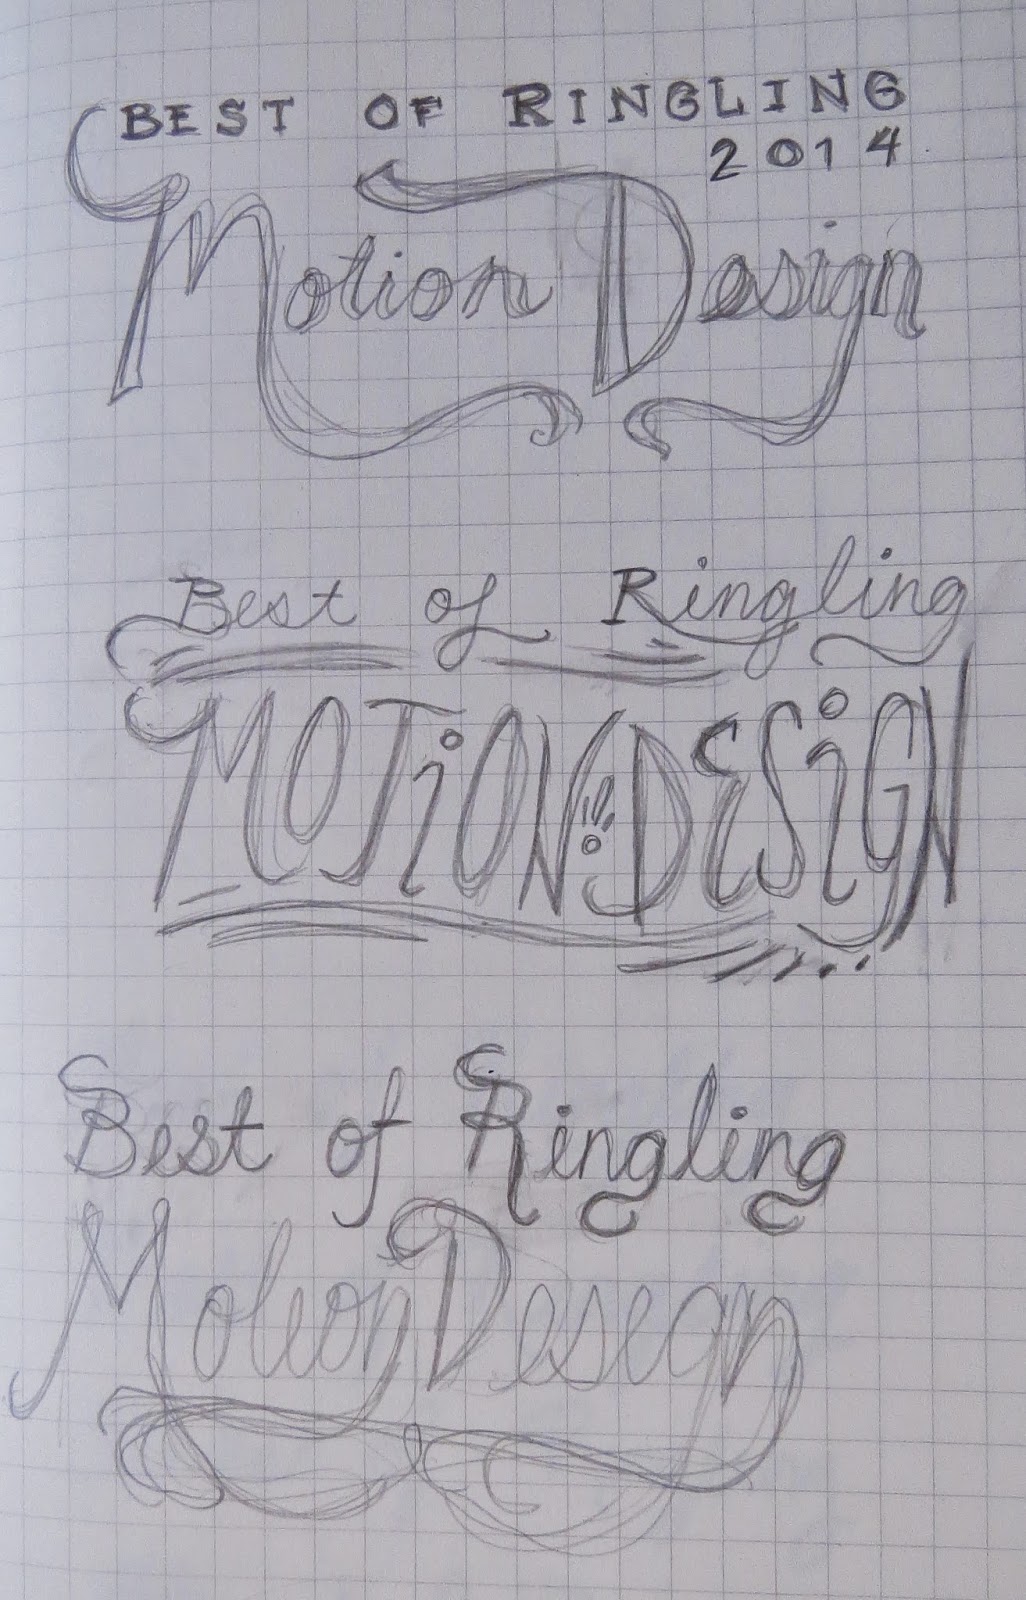 BEST OF RINGLING
2014
Motion Design
Best of Ringling
MOTiON DESiGN
Best of Ringling
Motion Design